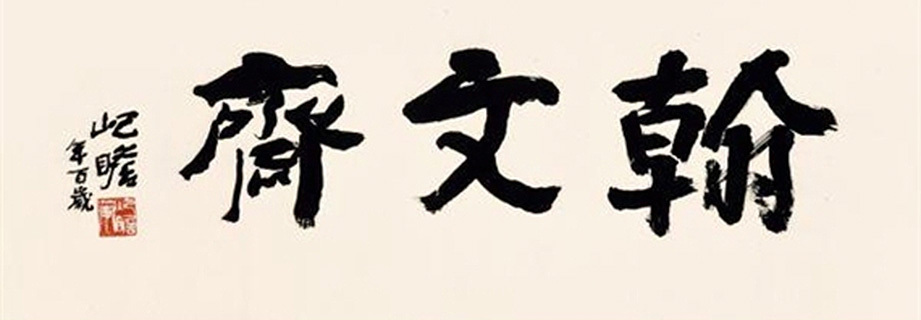 翰文齋
屺瞻
年百歲